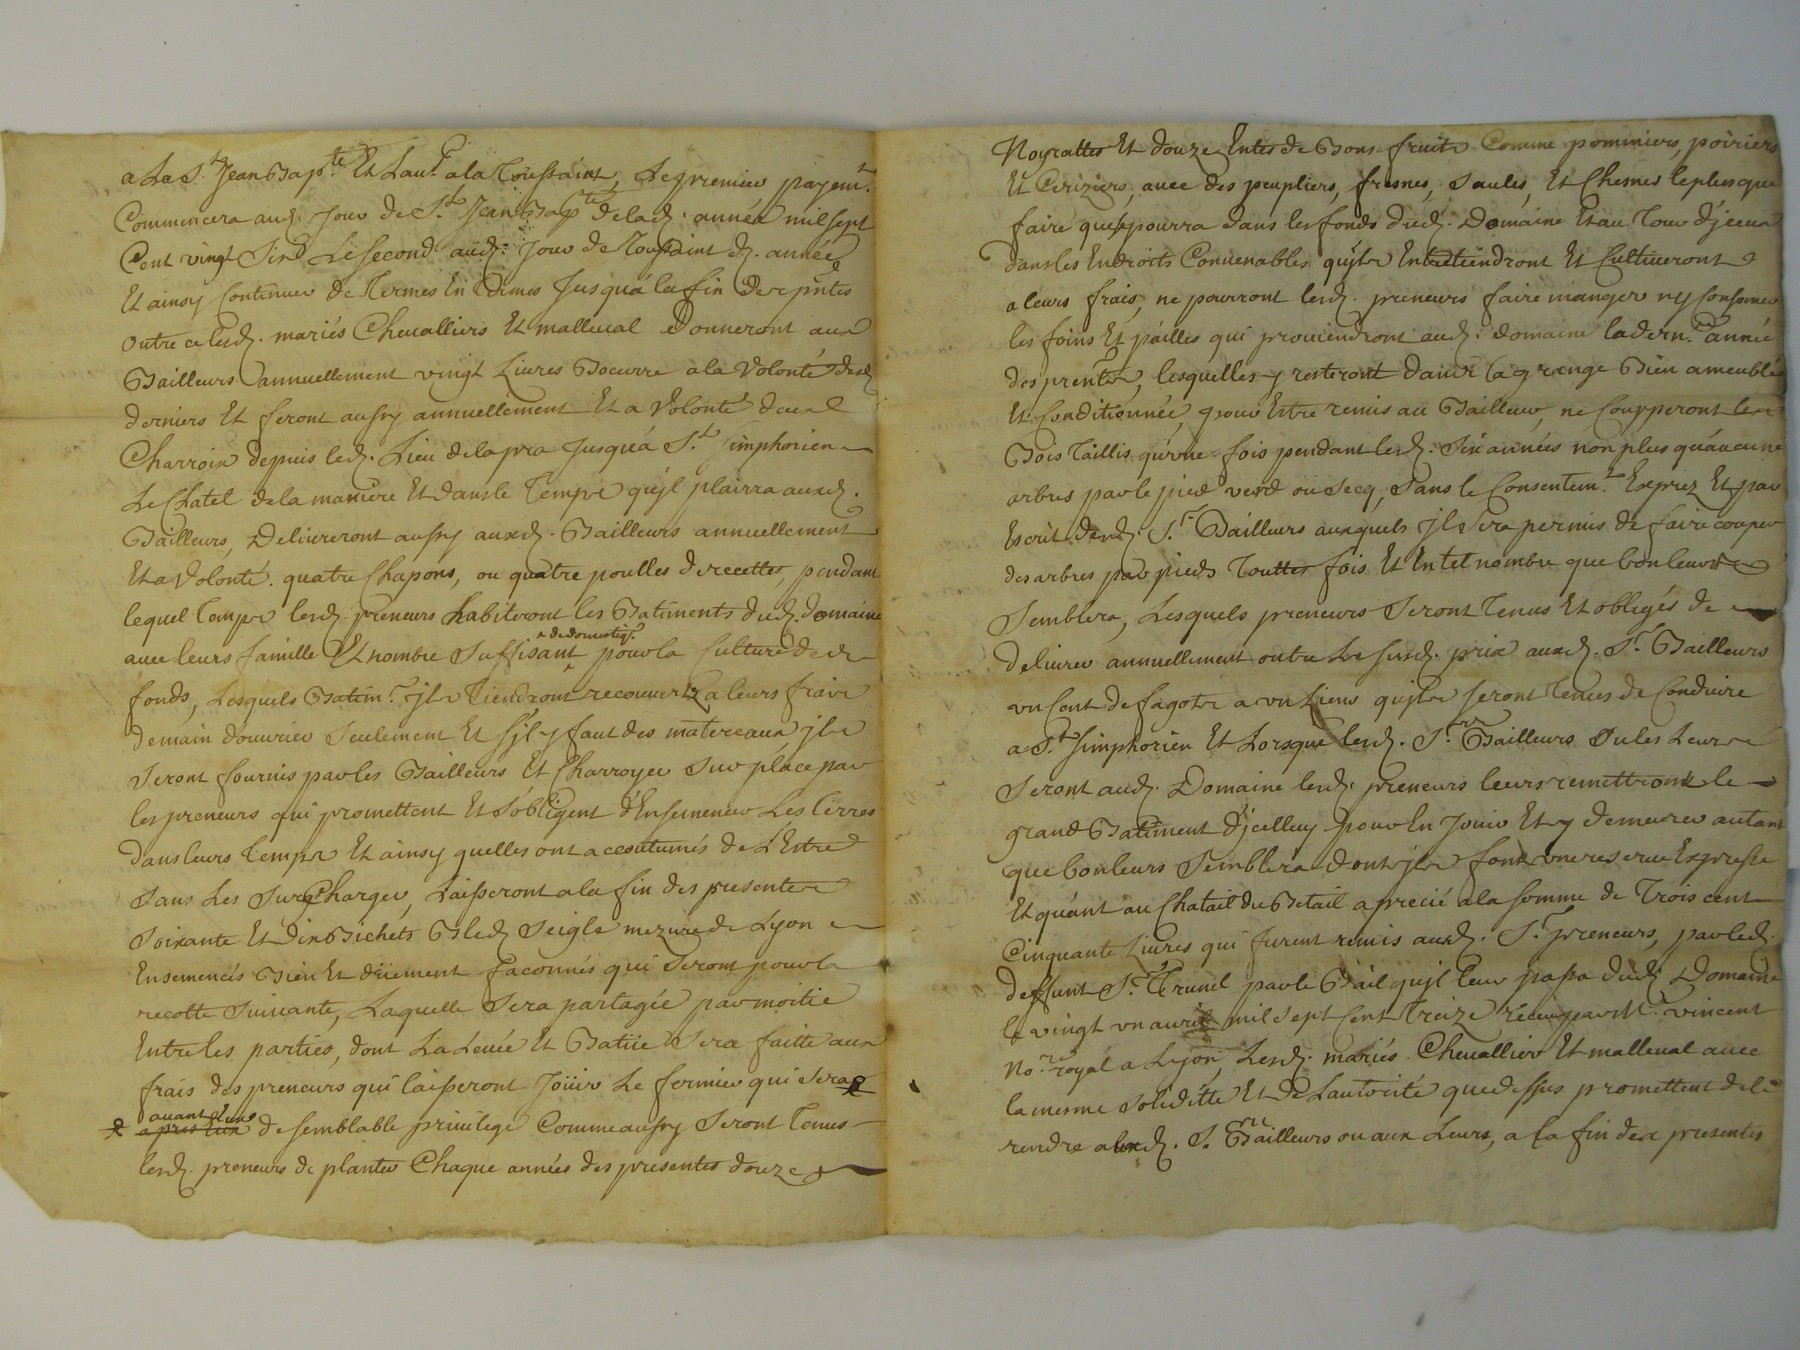 a La St Jean Bapte Et Laut a la Toussaint, Le premier payemt
Commencera aud. Jour de St Jean Bapte de lad. année mil sept
Cent vingt Six Le Second aud. Jour de Toussaint d. année
Et ainsy Continuer de Termes En Termes Jusqua la fin des pntes
outre ce lesd. mariés Chevalliers Et malleval Donneront aux
Bailleurs annuellement vingt Livres Boeurre a la Volonté desd
derniers Et feront aussy annuellement Et a Volonté deux
Charrois depuis led. Lieu de la pra Jusqu'a St Simphorien
Le Chatel de la maniere Et dans le Temps qu'jl plairra auxd.
Bailleurs, Delivreront aussy auxd. Bailleurs annuellement
Et a Volonté quatre Chapons, ou quatre poulles de recettes, pendant
lequel Temps lesd. preneurs habiteront les Batiments dud. Domaine
avec leurs famille Et nombre Suffisant de domestiq. pour la Culture desd
fonds, Lesquels Batimts jls Tiendront recouverts a leurs frais
de main d'ouvrier Seulement Et s'jl y faut des matereaux jls
Seront fournis par les Bailleurs Et Charroyer Sur place par
les preneurs qui promettent Et s'obligent d'Ensemencer Les terres
dans leurs Temps Et ainsy quelles ont accoutumés de L'Estre
Sans Les Surcharger, Laisseront a la fin des presentes
Soixante Et dix Bichets Bled Seigle mezure de Lyon
Ensemencés Bien Et düement faconnés qui Seront pour la
recolte Suivante, Laquelle Sera partagée par moitie
Entre les parties, dont La Levée Et Batüe Sera faitte aux
frais des preneurs qui laisseront Joüir Le fermier qui Sera
avant Eux
apres Eux de Semblable privilege Comme aussy Seront Tenus
lesd. preneurs de planter Chaque années des presentes douze
Noyrattes Et douze Entes de Bons fruits Comme pommiers, poiriers
Et Ceriziers, avec des peupliers, fresnes, Saules, Et Chesnes le plus que
faire que se pourra dans les fonds dud. Domaine Et au Tour d'jceux
dans les Endroits Convenables qu'jls Entretiendront Et Cultiveront
a leurs frais, ne pourront lesd. preneurs faire manger ny Consomer
les foins Et pailles qui proviendront aud. domaine la dern.e année
des prentes, lesquelles y resteront dans la grange Bien ameublée
Et Conditionnée, pour Estre remis au Bailleur, ne Coupperont les
Bois Taillis qu'vne fois pendant lesd. Six années non plus qu'aucune
arbres par le pied verd ou Secq, Sans le Consentemt Exprez Et par
Escrit desd. Sr Bailleurs auxquels jl Sera permis de faire couper
des arbres par pieds Touttes fois Et En tel nombre que bon leurs
Semblera, Lesquels preneurs Seront Tenus Et obligés de
delivrer annuellement outre Le Susd. prix auxd. Sr Bailleurs
vn Cent de fagots a vn Liens qu'jls Seront Tenus de Conduire
a St Simphorien Et Lorsque lesd. Srs Bailleurs Ou les Leurs
Seront aud. Domaine lesd. preneurs leurs remettront le
grand Batiment d'jcelluy pour En Jouir Et y demeurer autant
que bon leurs Semblera dont jls font vne reserve Expresse
Et quant au Chatail du Betail aprecié a la Somme de Trois cent
Cinquante Livres qui furent remis auxd. Sr preneurs, par led.
deffunt Sr Trunel par le Bail qu'jl leur passa dud. Domaine
le vingt vn avril mil sept Cent Treize receu par Mr vincent
No.re royal a Lyon, Lesd. mariés Chevallier Et malleval avec
la mesme Soliditte Et de L'autorité que dessus promettent de le
rendre auxd. Srs Bailleurs ou aux Leurs, a la fin des presentes